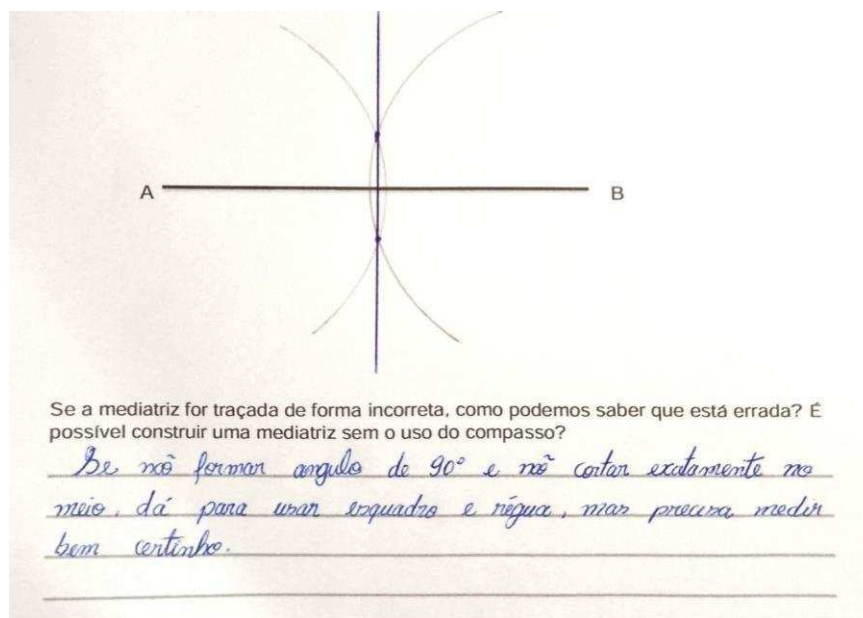 A
B
Se a mediatriz for traçada de forma incorreta, como podemos saber que está errada? É
possível construir uma mediatriz sem o uso do compasso?
Se nõ formar angulo de 90° e nõ cortar exatamente no
meio, dá para usar esquadro e régua, mas precisa medir
bem certinho.